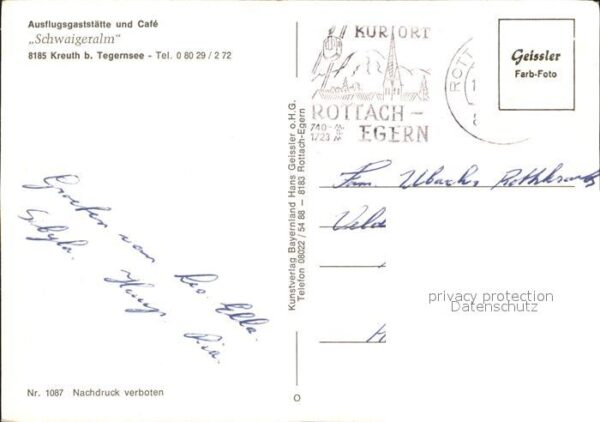 Ausflugsgaststätte und Café
„Schwaigeralm"
8185 Kreuth b. Tegernsee - Tel. 0 80 29 / 2 72
KURORT
ROTTACH-
EGERN
740-
1723 M
ROTT
Geissler
Farb-Foto
Kunstverlag Bayernland Hans Geissler o.H.G.
Telefon 08022 / 54 88 — 8183 Rottach-Egern
Fam. Ubachs
Veld
privacy protection
Datenschutz
Leo. Ella.
Sibylla. Ria.
Nr. 1087 Nachdruck verboten